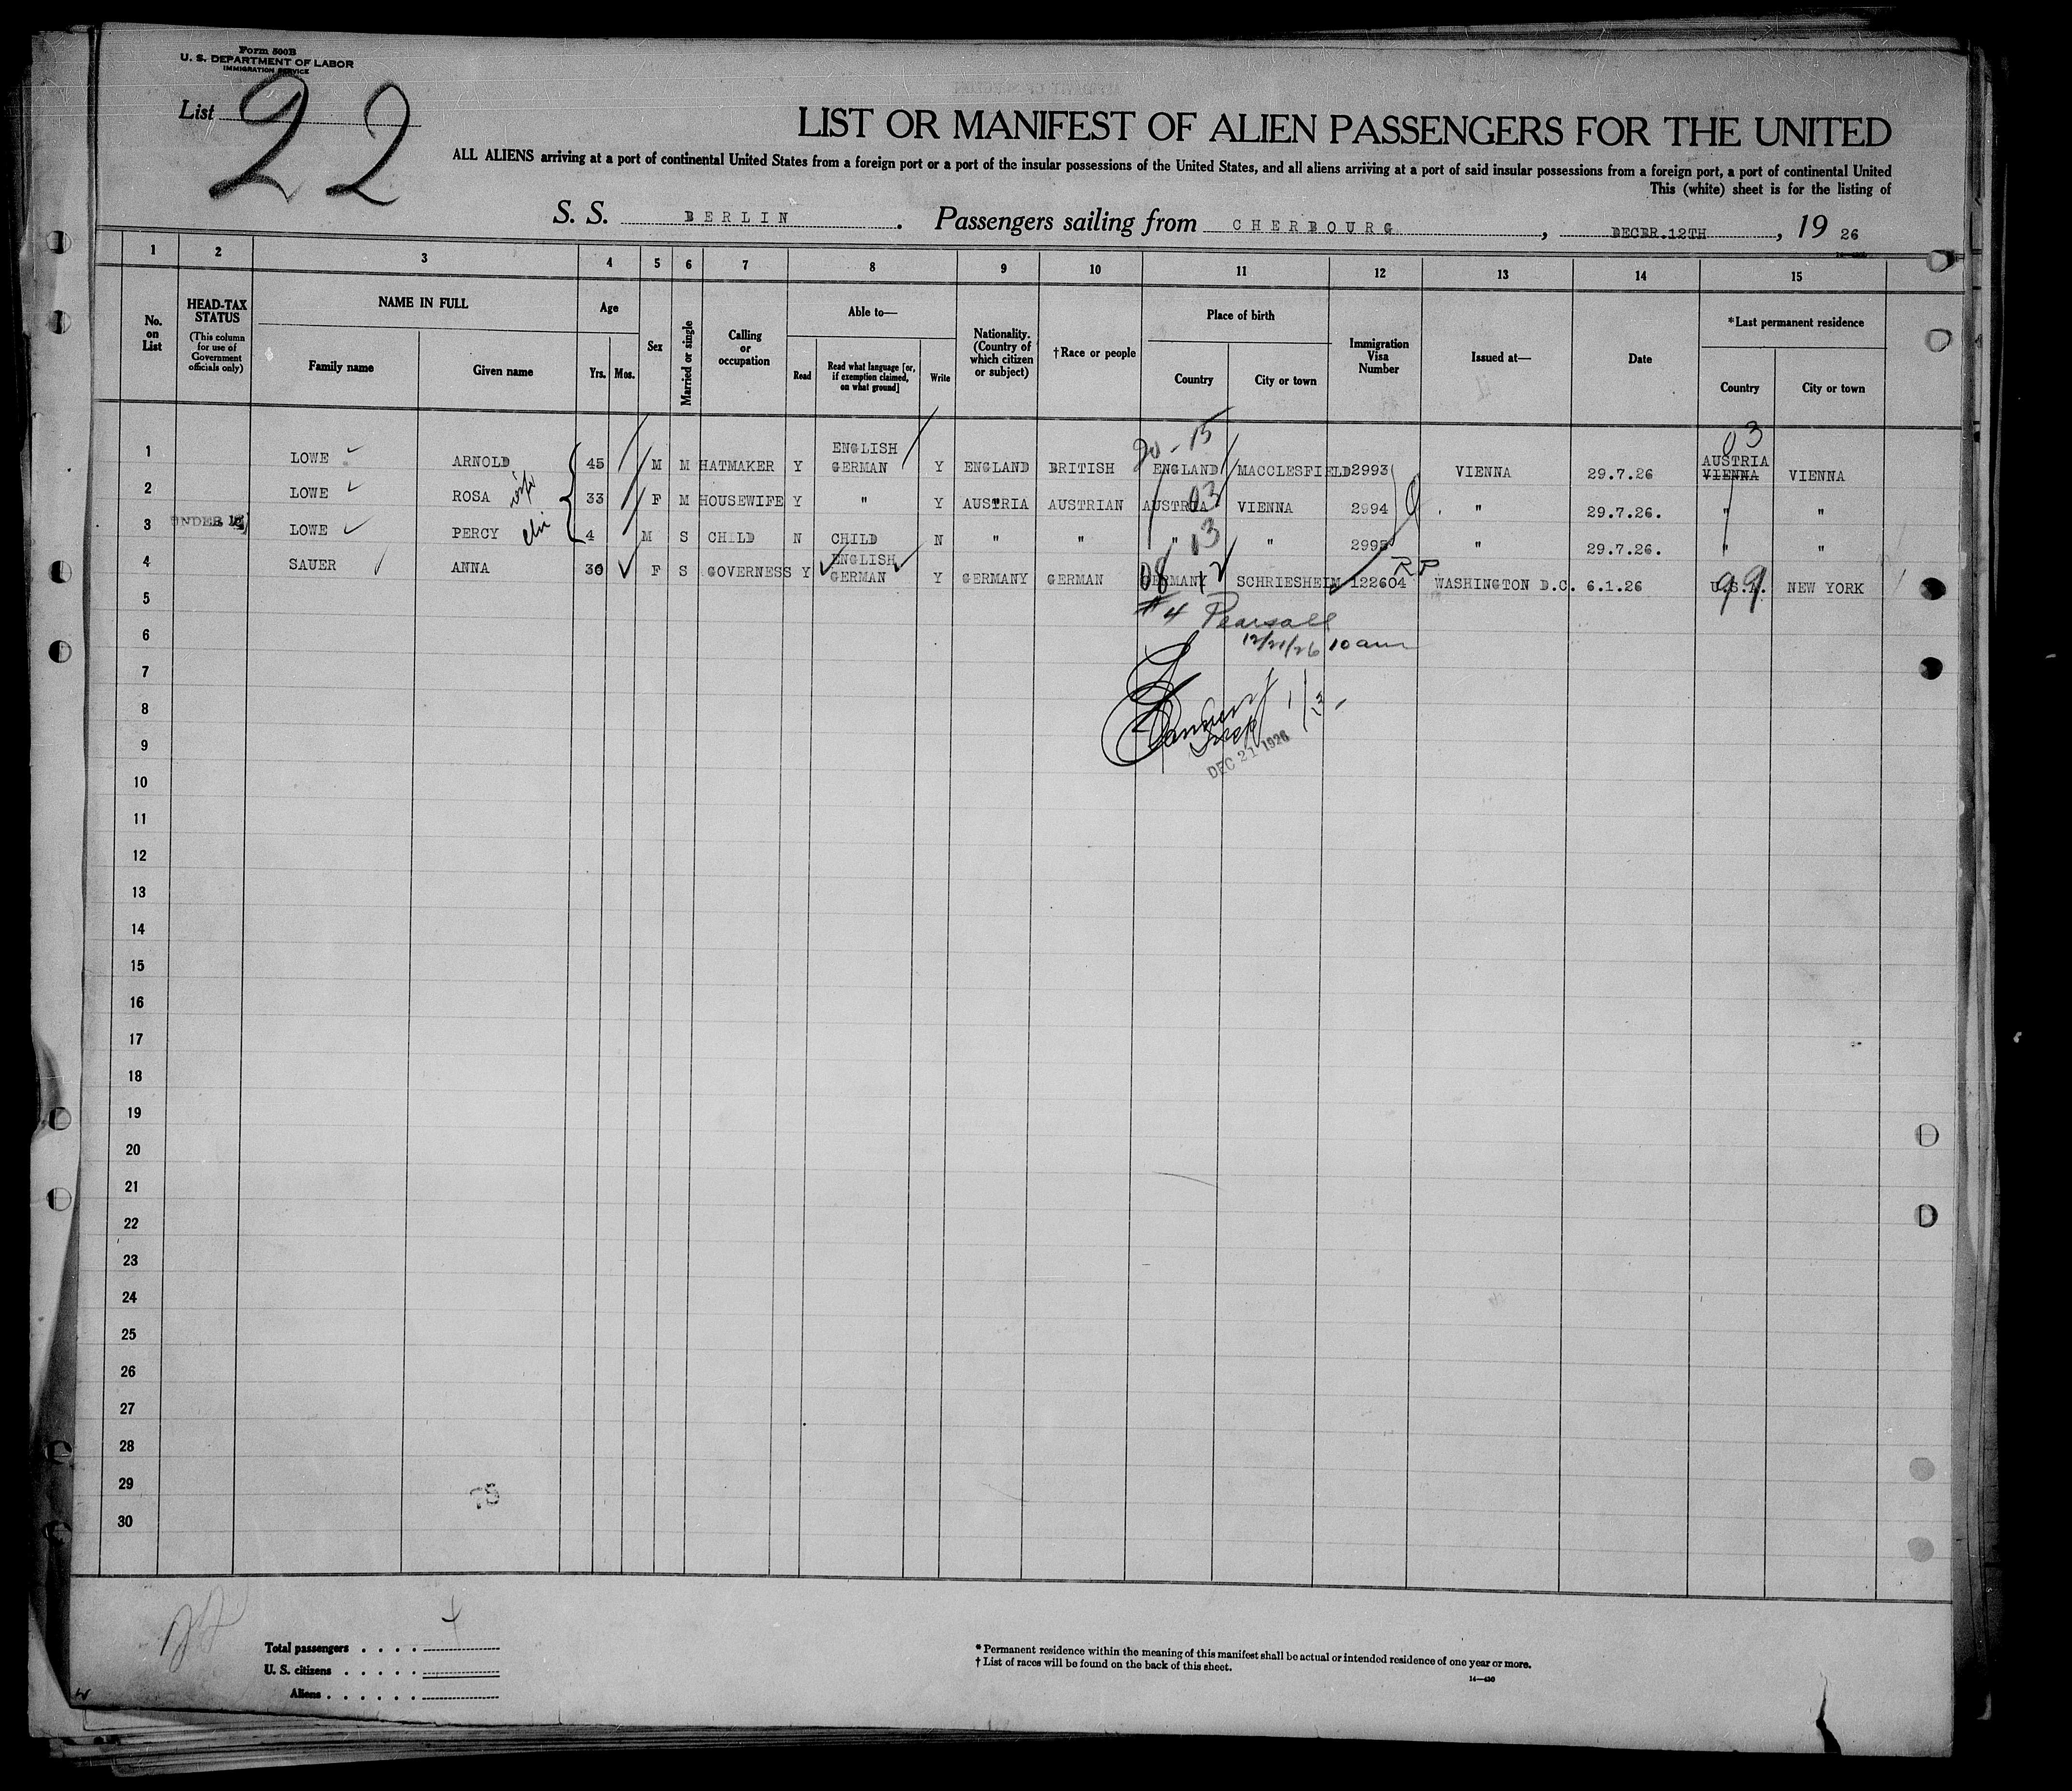 Form 500B
U. S. DEPARTMENT OF LABOR
IMMIGRATION SERVICE
List 22
LIST OR MANIFEST OF ALIEN PASSENGERS FOR THE UNITED
ALL ALIENS arriving at a port of continental United States from a foreign port or a port of the insular possessions of the United States, and all aliens arriving at a port of said insular possessions from a foreign port, a port of continental United
This (white) sheet is for the listing of
S. S. BERLIN. Passengers sailing from CHERBOURG, DECBR.12TH, 19 26
1 2 3 4 5 6 7 8 9 10 11 12 13 14 15
No. on List
HEAD-TAX STATUS
(This column for use of Government officials only)
NAME IN FULL
Family name Given name
Age
Yrs. Mos.
Sex
Married or single
Calling or occupation
Able to—
Read
Read what language [or, if exemption claimed, on what ground]
Write
Nationality. (Country of which citizen or subject)
†Race or people
Place of birth
Country City or town
Immigration Visa Number
Issued at—
Date
*Last permanent residence
Country City or town
20 - 15 03
1 LOWE ARNOLD 45 M M HATMAKER Y ENGLISH GERMAN Y ENGLAND BRITISH ENGLAND MACCLESFIELD 2993 VIENNA 29.7.26 AUSTRIA VIENNA VIENNA
2 LOWE ROSA wife 33 F M HOUSEWIFE Y " Y AUSTRIA AUSTRIAN AUSTRIA 03 VIENNA 2994 " 29.7.26. " "
3 UNDER 16 LOWE PERCY 4 M S CHILD N CHILD N " " " 13 " 2995 " 29.7.26. " "
4 SAUER ANNA 30 F S GOVERNESS Y ENGLISH GERMAN Y GERMANY GERMAN GERMANY 08 12 SCHRIESHEIM 122604 RP WASHINGTON D.C. 6.1.26 U.S.A. 99 NEW YORK
5 #4 Pearsall
6 12/21/26 10 am
7
8
9
DEC 21 1926
10
11
12
13
14
15
16
17
18
19
20
21
22
23
24
25
26
27
28
29
30
Total passengers
U. S. citizens
Aliens
* Permanent residence within the meaning of this manifest shall be actual or intended residence of one year or more.
† List of races will be found on the back of this sheet.
14—430